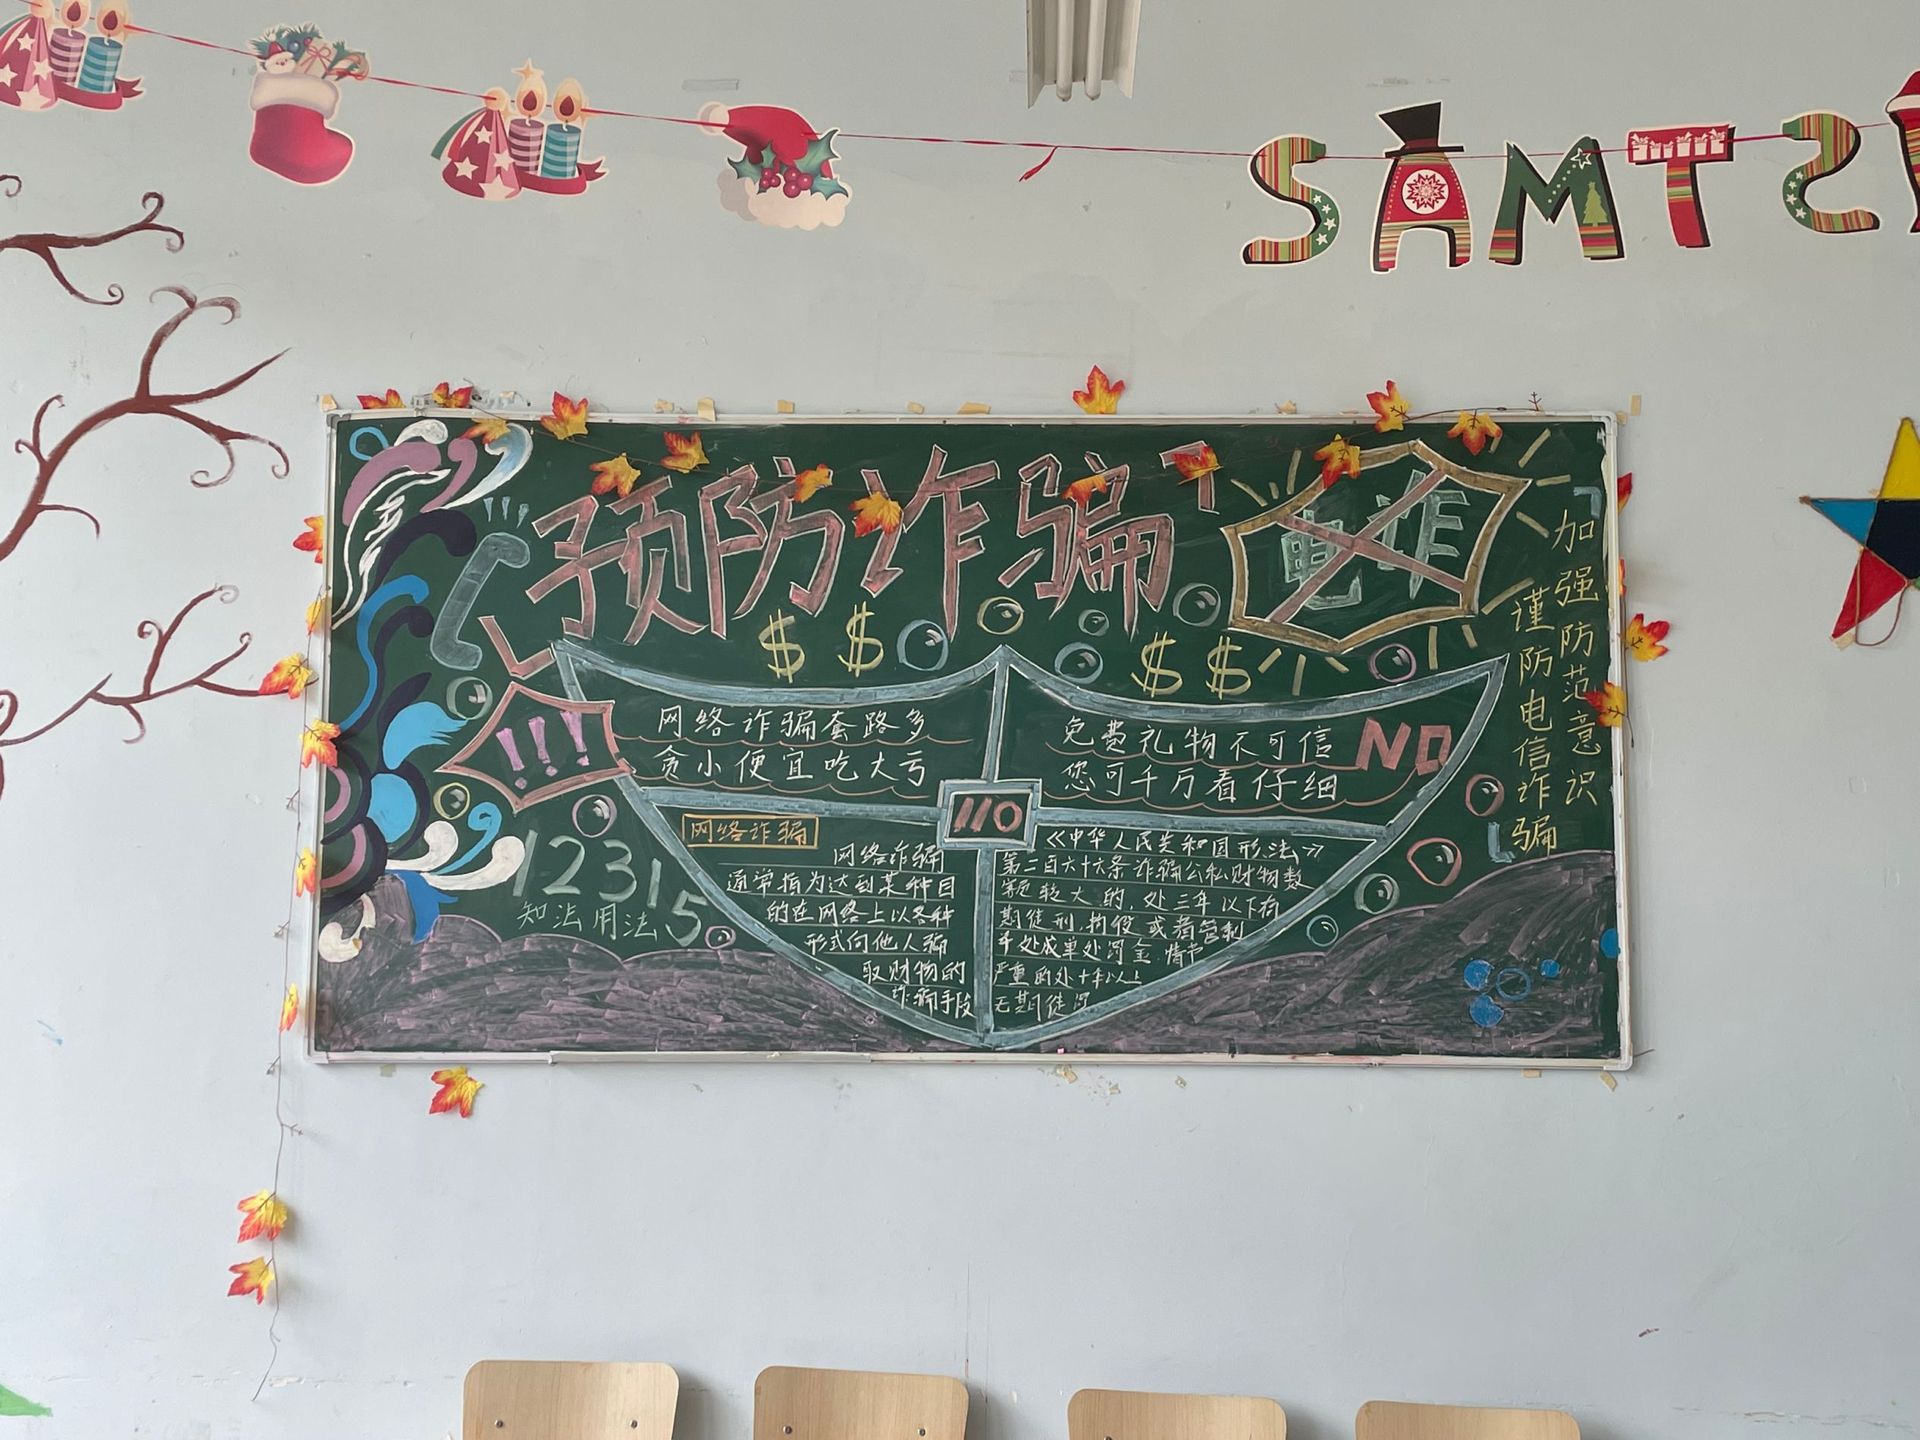 SAMTS
预防诈骗
电诈
加强防范意识
谨防电信诈骗
$ $
$ $
!!!
网络诈骗套路多
贪小便宜吃大亏
免费礼物不可信
您可千万看仔细
NO
110
网络诈骗
网络诈骗
通常指为达到某种目
的在网络上以各种
形式向他人骗
取财物的
诈骗手段
《中华人民共和国刑法》
第二百六十六条诈骗公私财物数
额较大的,处三年以下有
期徒刑,拘役或者管制
并处或单处罚金.情节
严重的处十年以上
无期徒
12315
知法用法